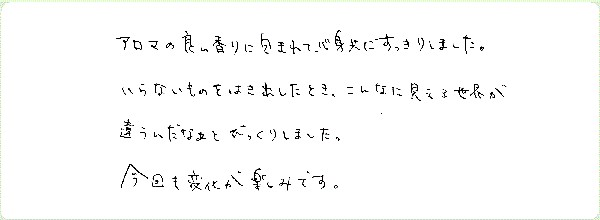 アロマの良い香りに包まれて、心身共にすっきりしました。
いらないものをはき出したとき、こんなに見える世界が
違うんだなぁとびっくりしました。
今回も変化が楽しみです。